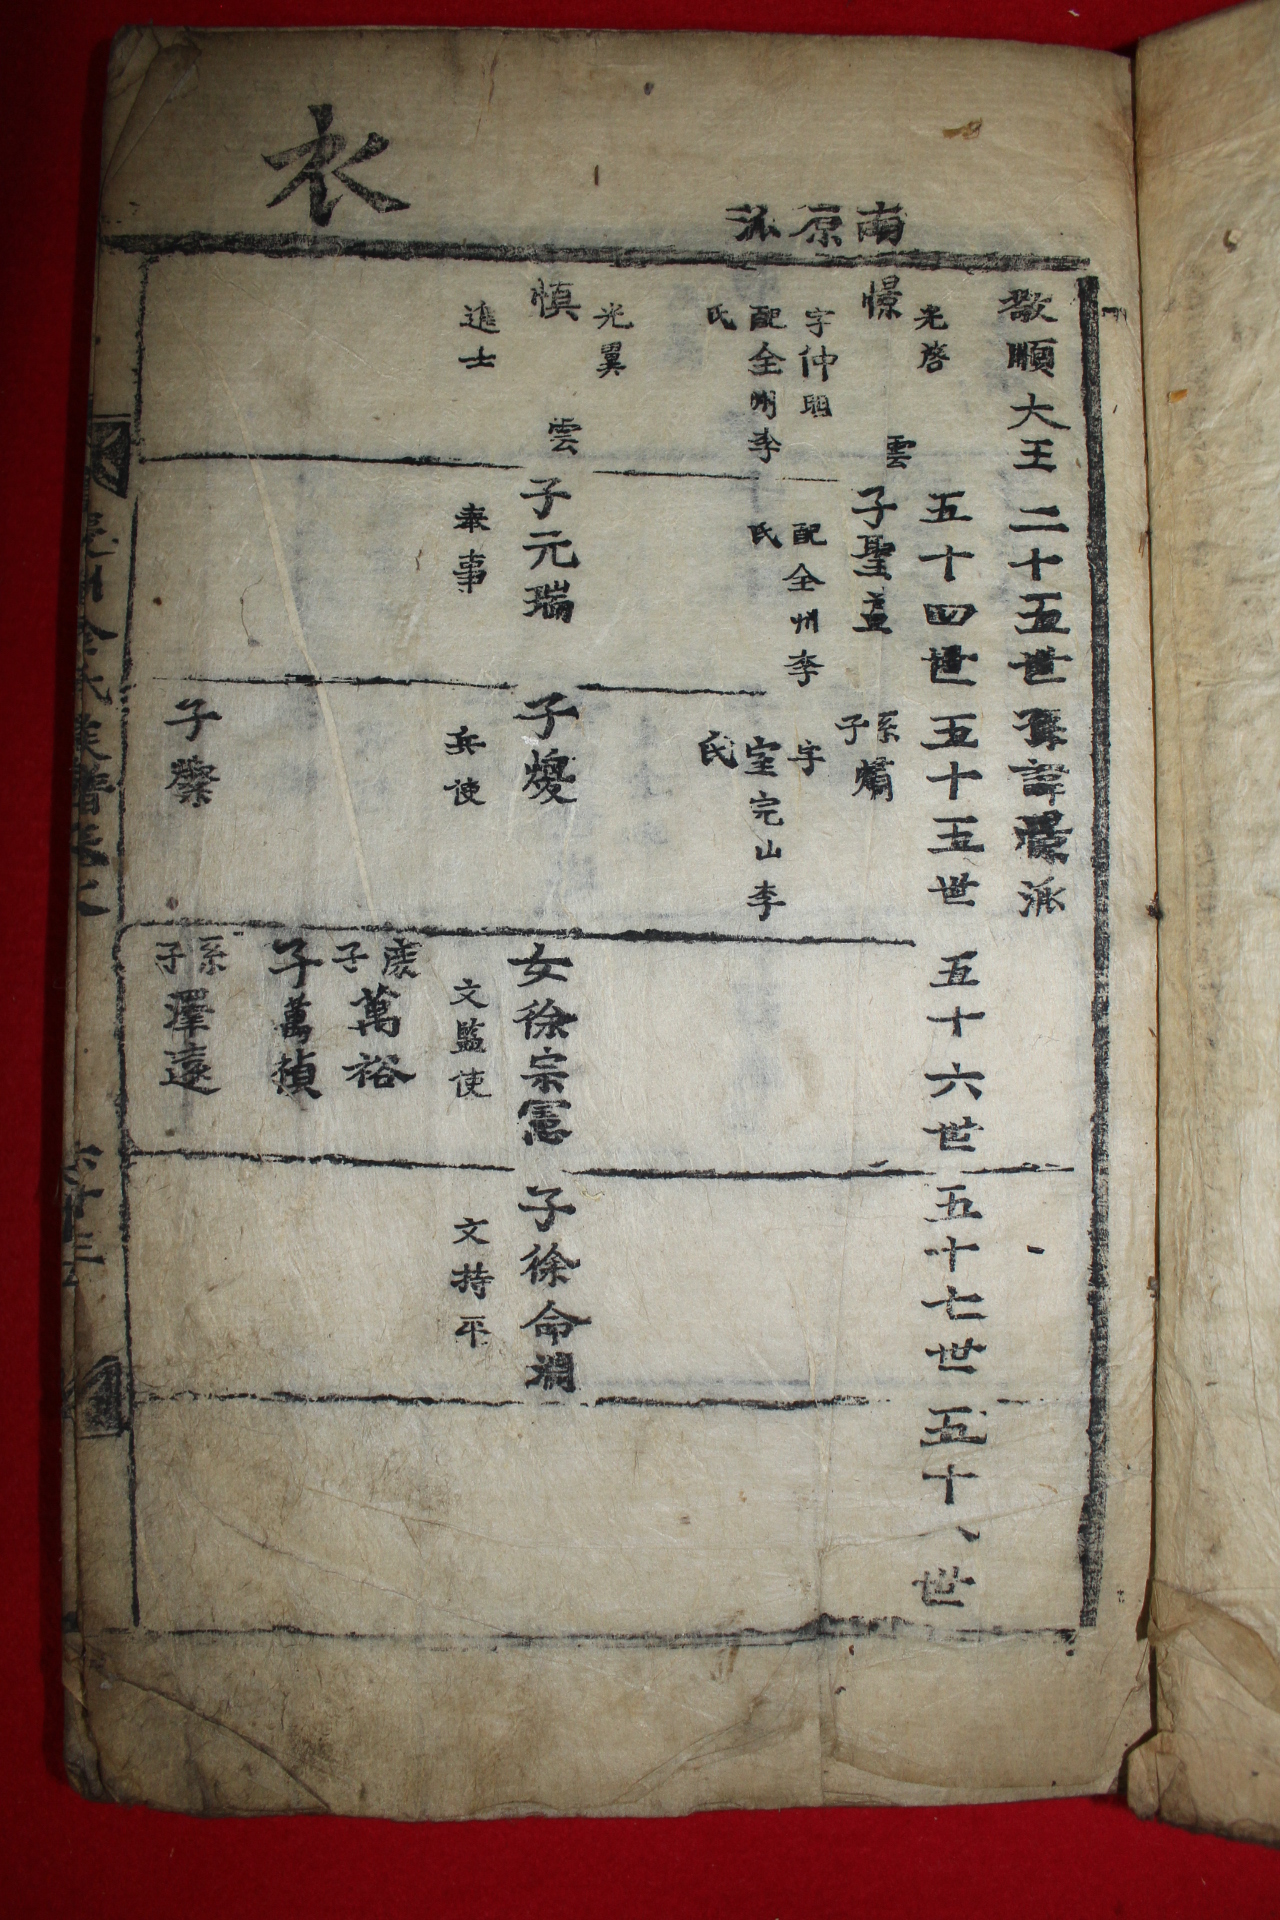 衣
南原派
敬順大王二十五世孫諱憬派
五十四世
五十五世
五十六世
五十七世
五十八世
光啓
憬
雲
字仲明
配全州李
氏
子聖益
配全州李
氏
系
子熽
字
室完山李
氏
光翼
愼
雲
進士
子元瑞
奉事
子㷇
兵使
女徐宗憲
文監使
子徐命淵
文持平
庶
子萬裕
子萬禎
子㷮
系
子澤遠
金氏族譜卷之
六十三